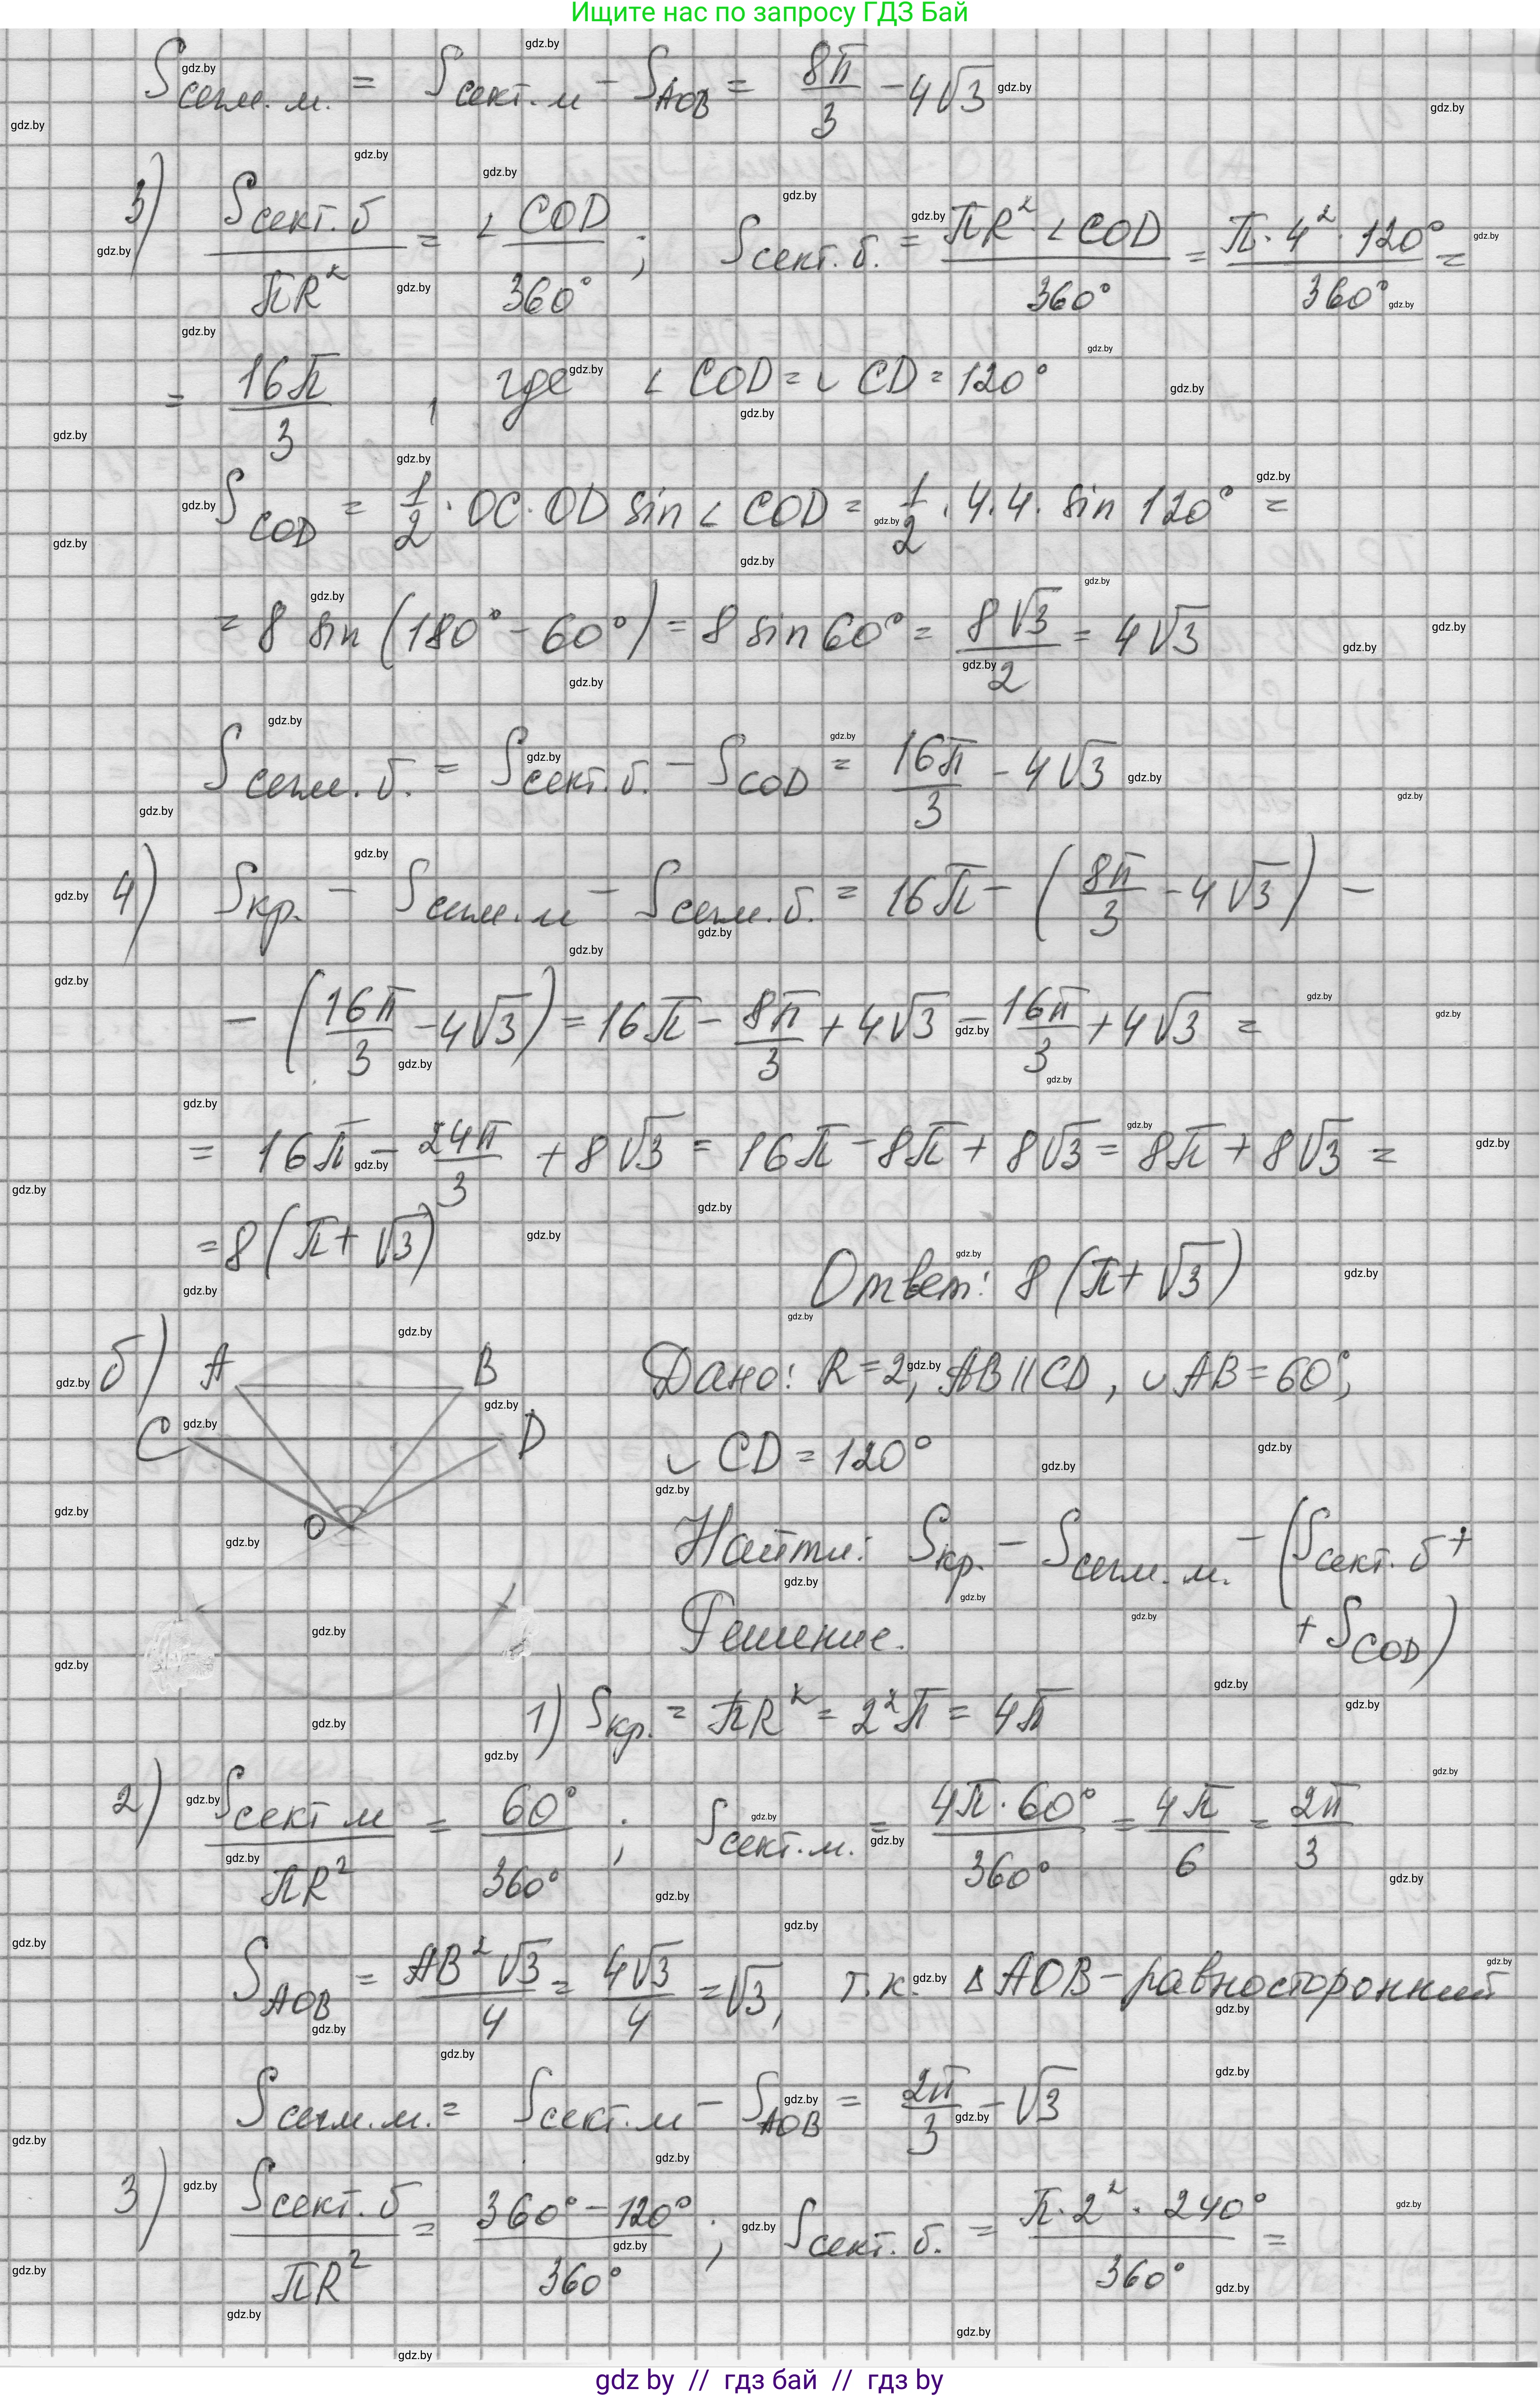 Ищите нас по запросу ГДЗ Бай
Sсегм. м. = Sсект. м − SAOB = 8π/3 − 4√3
3) Sсект. б / πR² = ∠COD / 360° ; Sсект. б. = πR² · ∠COD / 360° = π · 4² · 120° / 360° =
= 16π/3 , где ∠COD = ◡CD = 120°
SCOD = 1/2 · OC · OD sin ∠COD = 1/2 · 4 · 4 · sin 120° =
= 8 sin (180° − 60°) = 8 sin 60° = 8√3/2 = 4√3
Sсегм. б. = Sсект. б. − SCOD = 16π/3 − 4√3
4) Sкр. − Sсегм. м − Sсегм. б. = 16π − (8π/3 − 4√3) −
− (16π/3 − 4√3) = 16π − 8π/3 + 4√3 − 16π/3 + 4√3 =
= 16π − 24π/3 + 8√3 = 16π − 8π + 8√3 = 8π + 8√3 =
= 8(π + √3)
Ответ: 8(π + √3)
б) A B C D O
Дано: R = 2, AB || CD, ◡AB = 60°,
◡CD = 120°
Найти: Sкр. − Sсегм. м. − (Sсект. б +
+ SCOD)
Решение.
1) Sкр. = πR² = 2²π = 4π
2) Sсект м / πR² = 60° / 360° ; Sсект. м. = 4π · 60° / 360° = 4π/6 = 2π/3
SAOB = AB²√3/4 = 4√3/4 = √3, т.к. ΔAOB − равносторонний
Sсегм. м. = Sсект. м − SAOB = 2π/3 − √3
3) Sсект. б / πR² = 360° − 120° / 360° ; Sсект. б. = π · 2² · 240° / 360° =
gdz by // гдз бай // гдз by